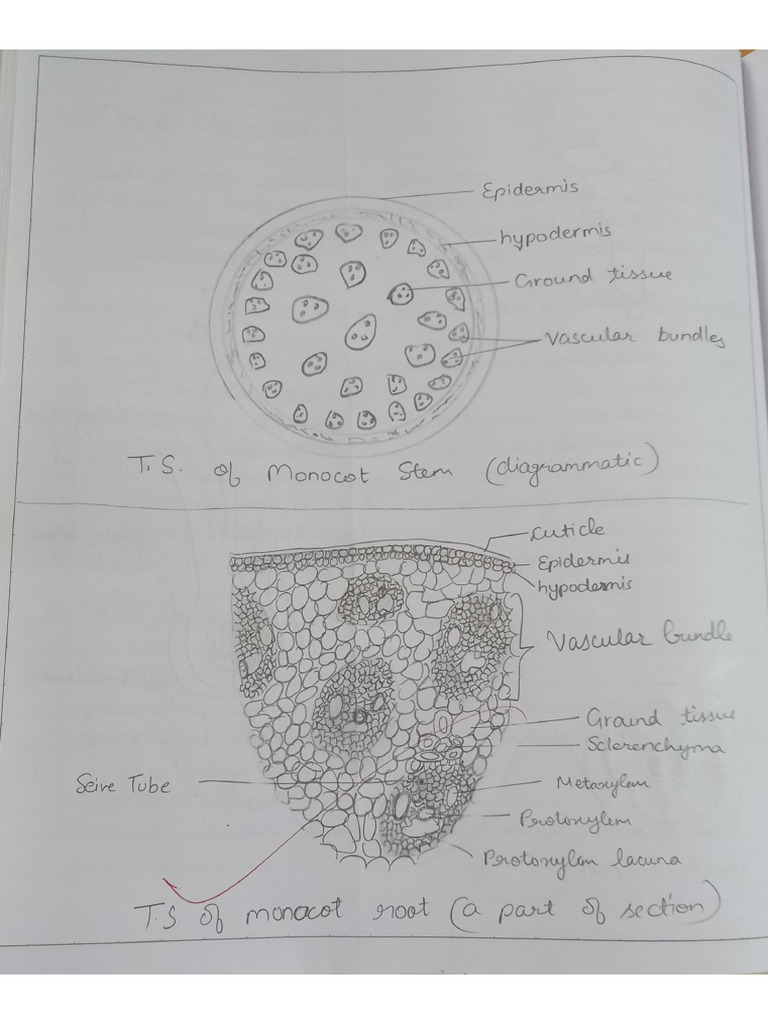 Epidermis
hypodermis
Ground tissue
Vascular bundles
T.S. of Monocot Stem (diagrammatic)
Cuticle
Epidermis
hypodermis
Vascular bundle
Ground tissue
Sclerenchyma
Seive Tube
Metaxylem
Protoxylem
Protoxylem lacuna
T.S of monocot root (a part of section)